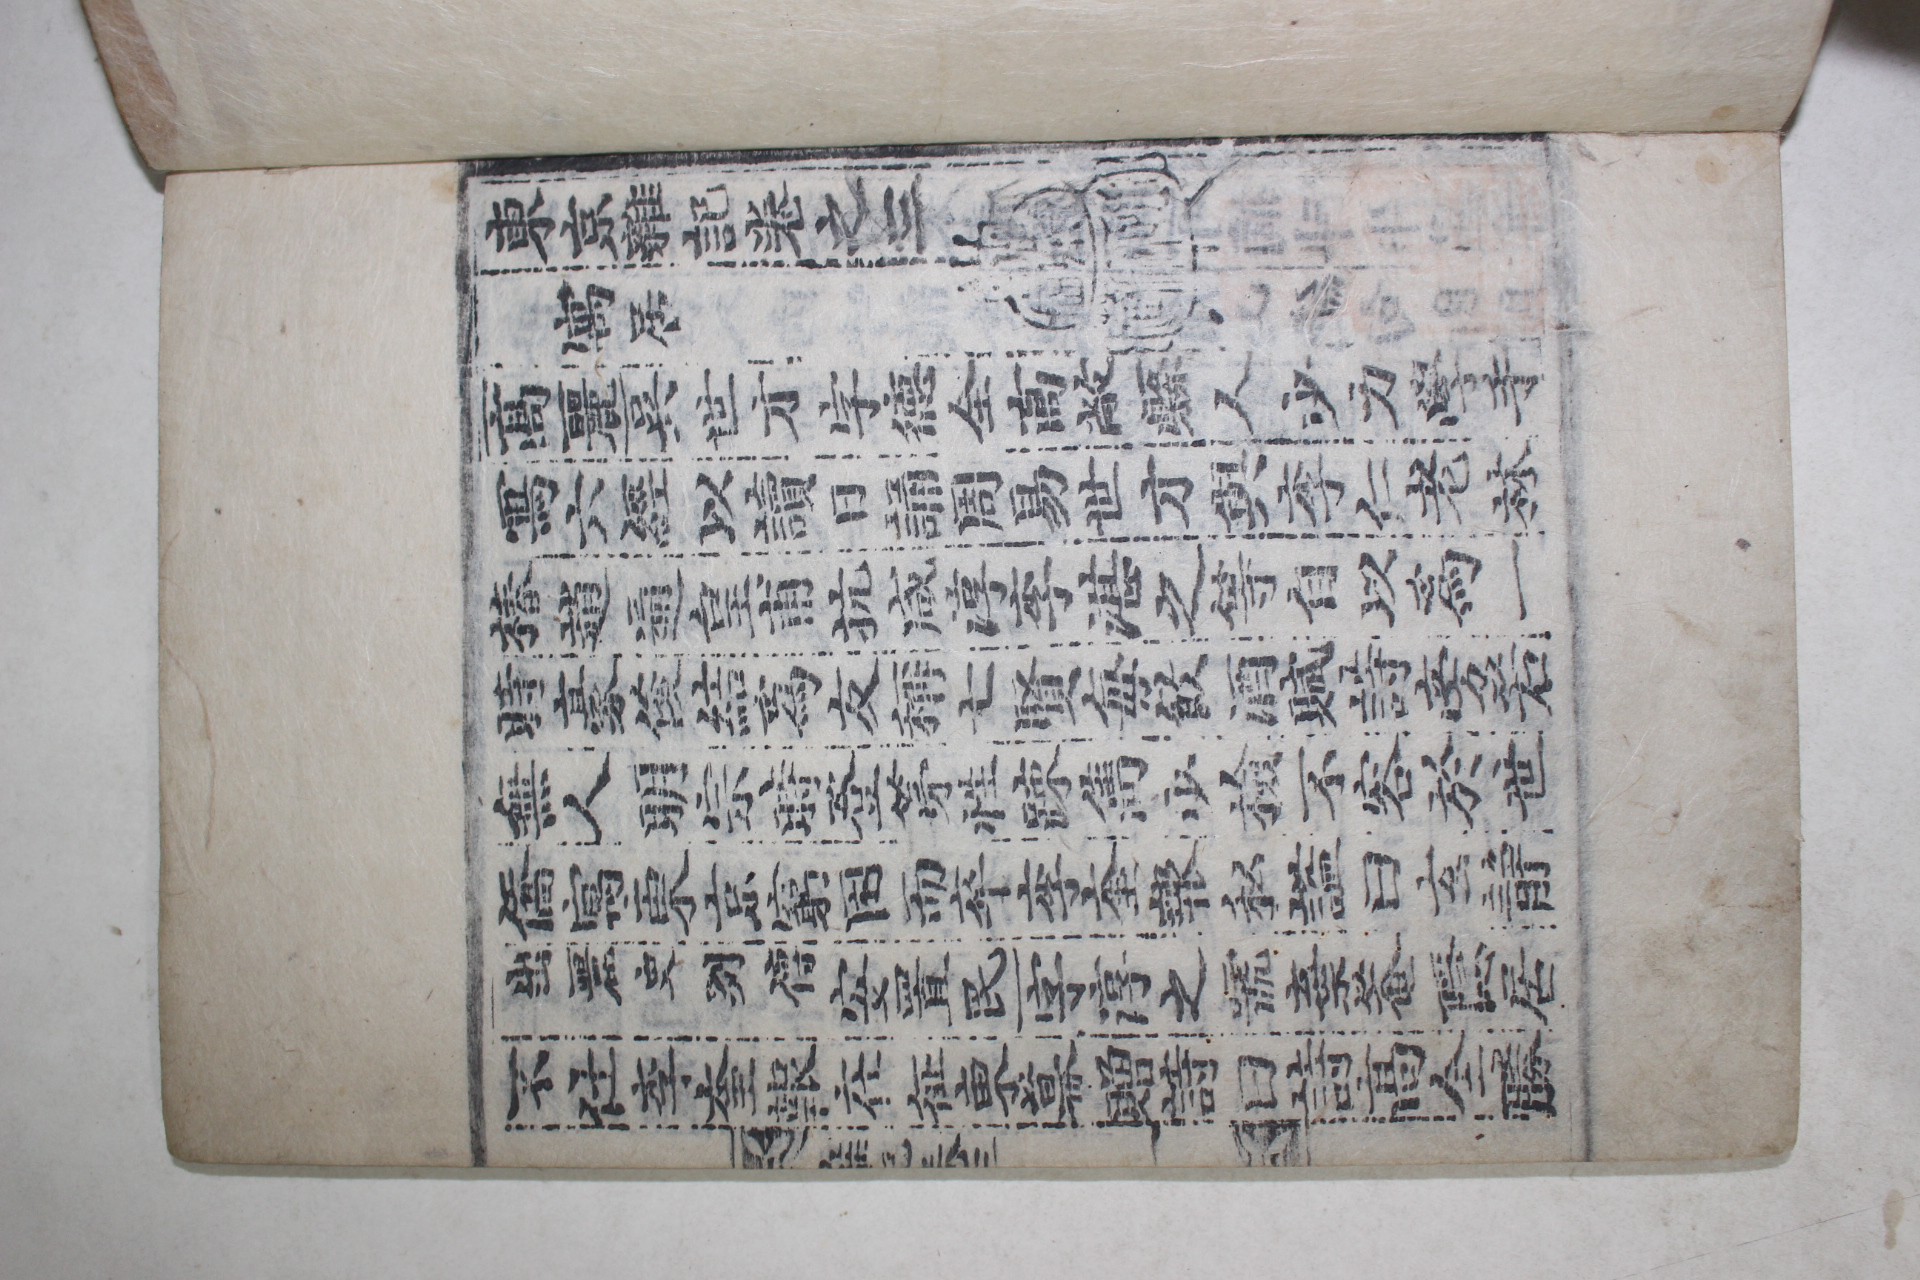 東京雜記卷之三
寓居
高麗吳世才字德全高敞縣人少力學手
寫六經以讀日誦周易世才與李仁老林
椿趙通皇甫抗咸淳李湛之等自以爲一
時豪俊結爲友稱七賢每飮酒賦詩旁若
無人明宗時登第性踈雋少檢不容於世
僑寓東京窮困而卒李奎報私謚曰玄靜
出麗史列傳 安置民字淳之號棄菴隱居
不仕李奎報在征東幕贈詩曰詩高全
雜記卷三